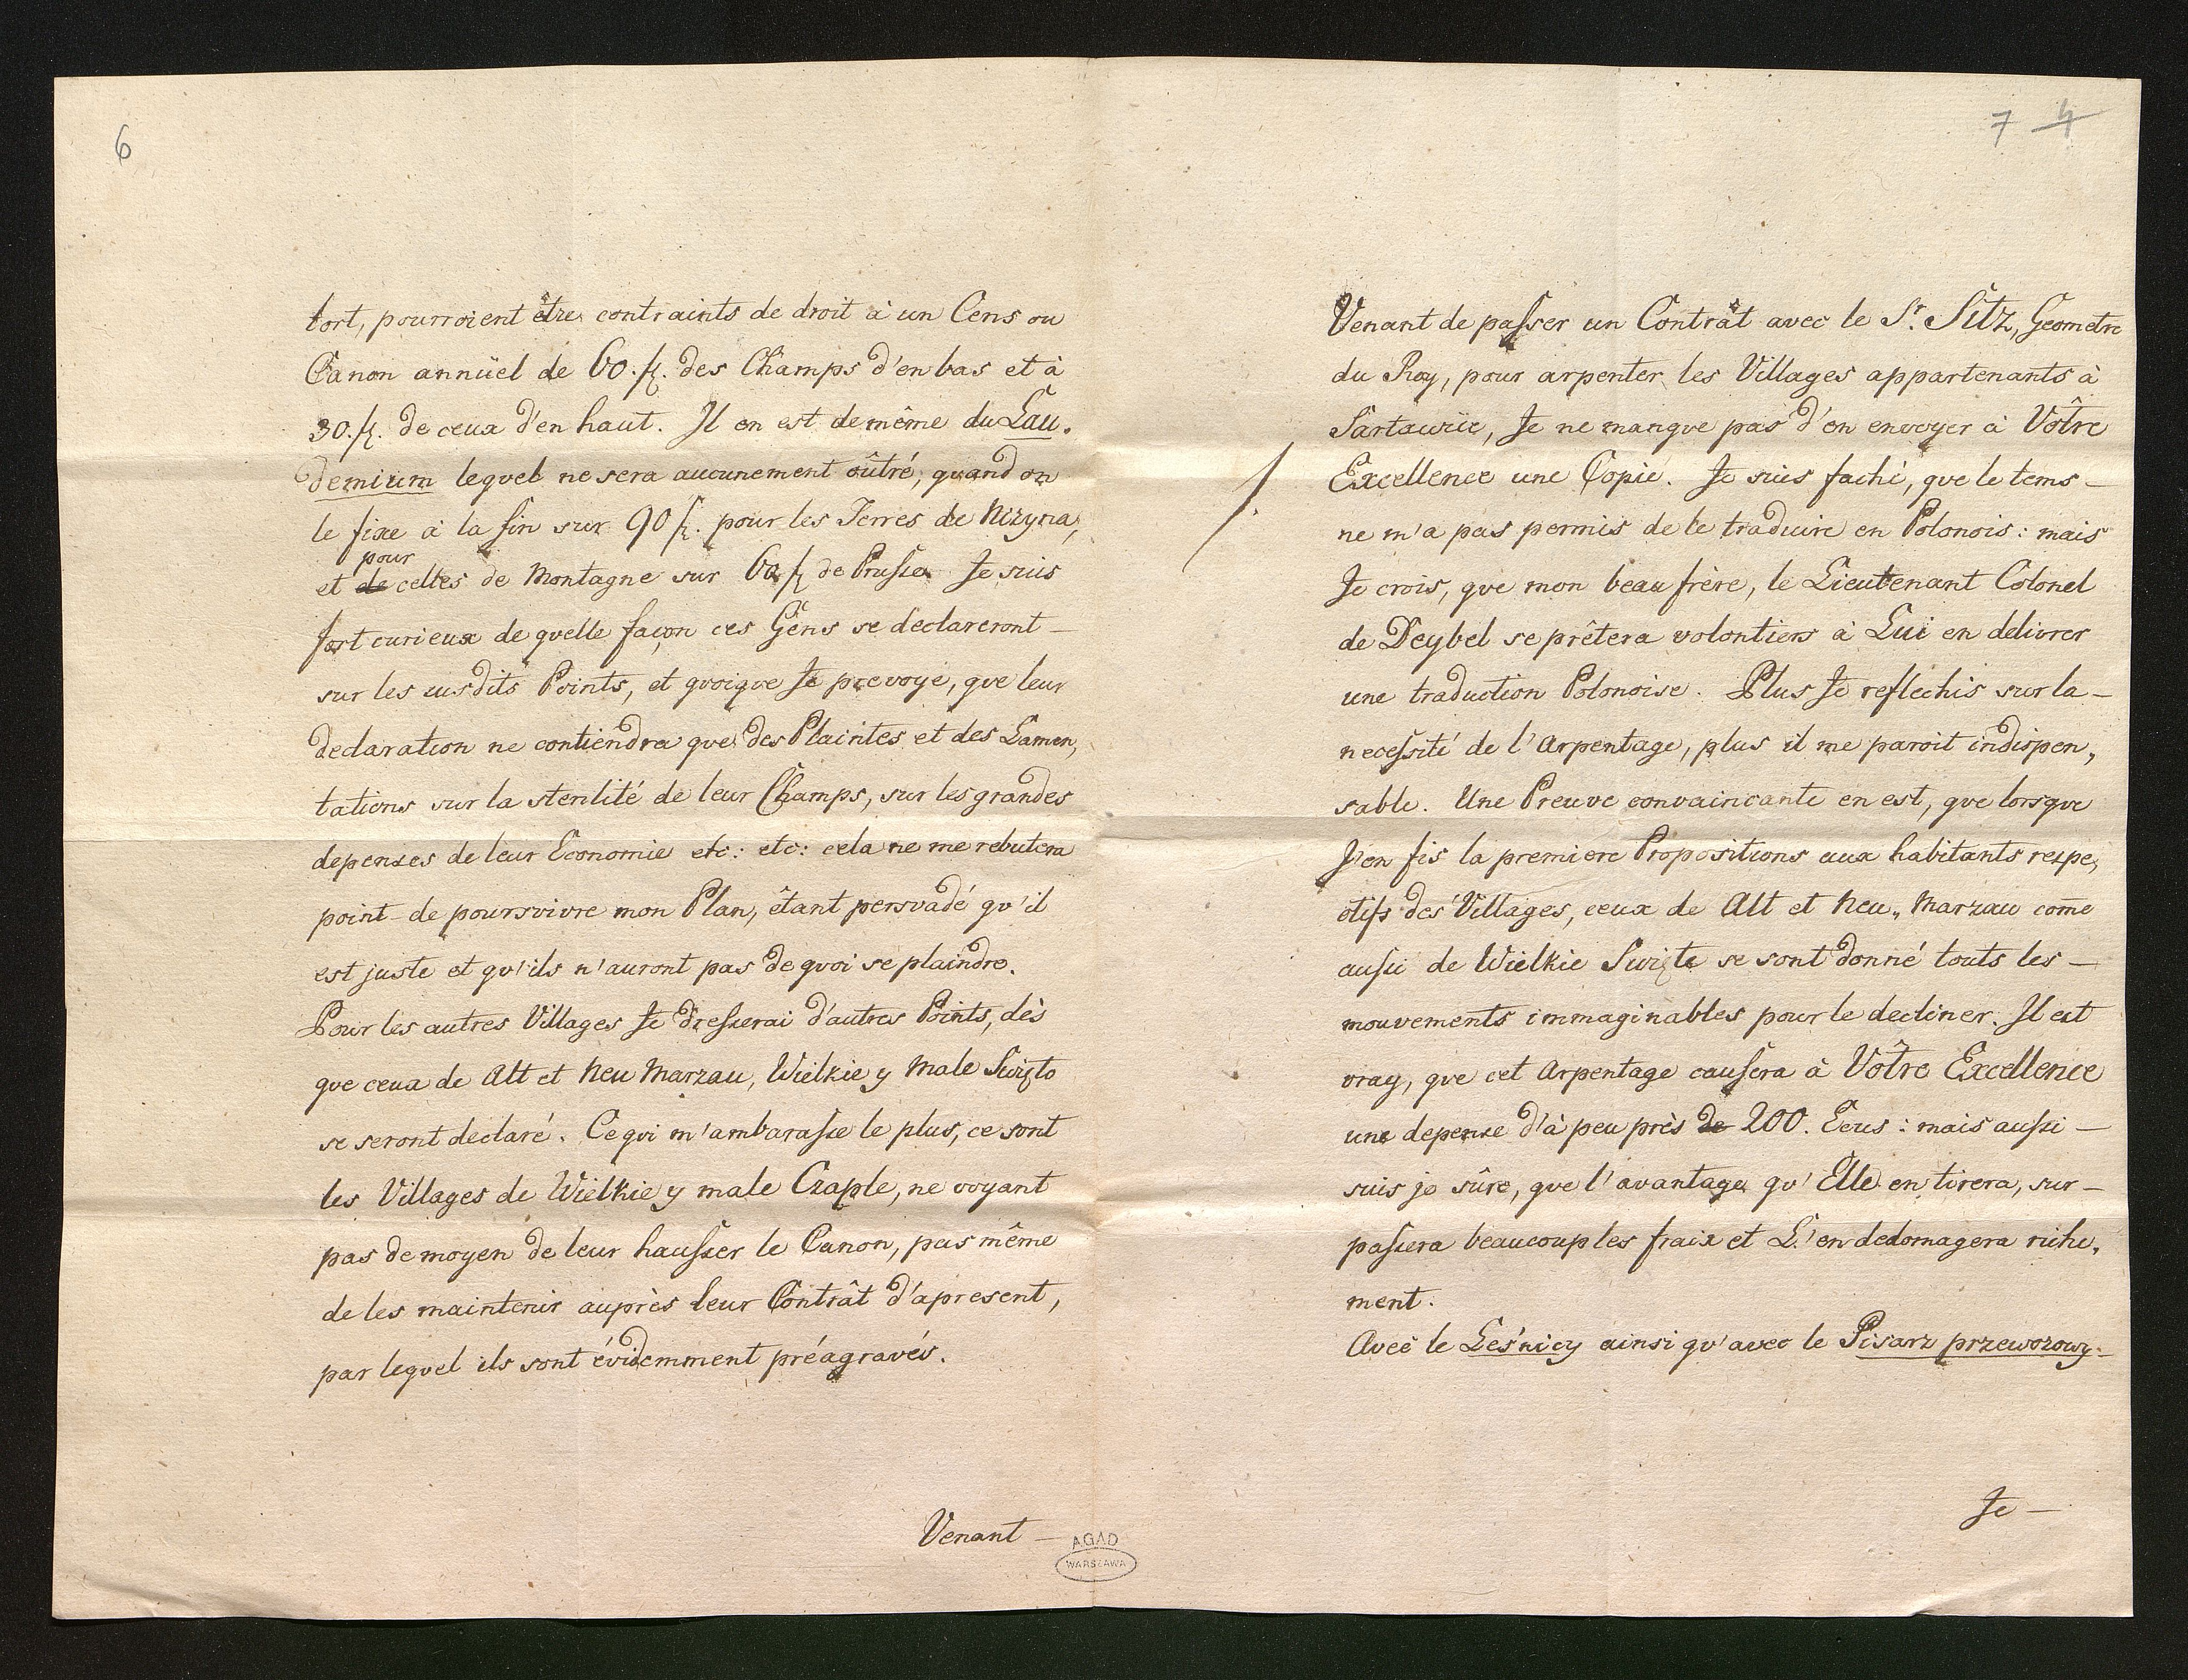 6
tort, pourroient être contraints de droit à un Cens ou
Canon annüel de 60. fl. des Champs d'en bas et à
30. fl. de ceux d'en haut. Il en est de même du Lau„
demium lequel ne sera aucunement oûtré, quand on
le fixe à la fin sur 90 fl. pour les Terres de Nizyna,
pour
et de celles de Montagne sur 60 fl de Prusse. Je suis
fort curieux de quelle façon ces Gens se declareront —
sur les susdits Points, et quoique Je prevoye, que leur
declaration ne contiendra que des Plaintes et des Lamen„
tations sur la sterilité de leur Champs, sur les grandes
depenses de leur Economie etc: etc: cela ne me rebutera
point de poursvivre mon Plan, êtant persvadé qu'il
est juste et qu'ils n'auront pas de quoi se plaindre.
Pour les autres Villages Je dresserai d'autres Points, dès
que ceux de Alt et Neu Marzau, Wielkie y Male Swięto
se seront declaré. Ce qui m'ambarasse le plus, ce sont
les Villages de Wielkie y male Czaple, ne voyant
pas de moyen de leur hausser le Canon, pas même
de les maintenir auprès leur Contrât d'apresent,
par lequel ils sont évidemment préagravés.
Venant —
AGAD
WARSZAWA
7 4
Venant de passer un Contrât avec le Sr. Sitz, Geometre
du Roy, pour arpenter les Villages appartenants à
Sartawic, Je ne manque pas d'en envoyer à Vôtre
Excellence une Copie. Je suis fachè, que le tems —
ne m'a pas permis de le traduire en Polonois: mais
Je crois, que mon beau frère, le Lieutenant Colonel
de Deybel se prêtera volontiers à Lui en delivrer
une traduction Polonoise. Plus Je reflechis sur la —
necessité de l'Arpentage, plus il me paroit indispen„
sable. Une Preuve convaincante en est, que lorsque
J'en fis la premiere Propositions aux habitants respe„
ctifs des Villages, ceux de Alt et Neu„ Marzau com̃e
aussi de Wielkie Swięte se sont donné touts les —
mouvements immaginables pour le decliner. Il est
vray, que cet Arpentage causera à Vôtre Excellence
une depense d'à peu près de 200. Ecus: mais aussi —
suis je sûre, que l'avantage qu'Elle en tirera, sur —
passera beaucoup les fraix et L'en dedomagera riche„
ment.
Avec le Leśnicy ainsi qu'avec le Pisarz przewozowy —
Je —